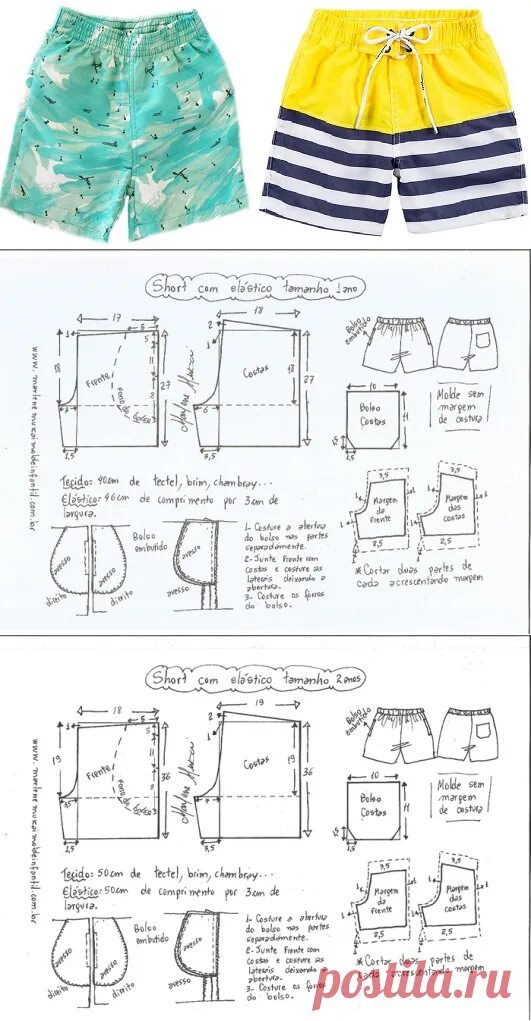 Short com elástico tamanho 1 ano
17
5
1
18
5
11
27
Frente
Fundo do bolso
3
1,5
www.marlenemukaimoldeinfantil.com.br
18
2
1
Costas
18
27
6
3,5
Marlene Mukai
Bolso embutido
10
Bolso
Costas
11
1,5
Molde sem
margem
de costura
Tecido: 40cm de tectel, brim, chambray...
Elástico: 46cm de comprimento por 3cm de
largura.
Bolso
embutido
avesso
avesso
direito
direito
avesso
1- Costure a abertura
do bolso nas partes
separadamente.
2- Junte frente com
costas e costure as
laterais deixando a
abertura.
3- Costure os forros
do bolso.
3,5
Margem
da
Frente
1
1
2,5
3,5
Margem
das
costas
1
1
2,5
* Cortar duas partes de
cada acrescentando margem
Short com elástico tamanho 2 anos
18
5
1
19
5
11
36
Frente
Fundo do bolso
3,5
1,5
www.marlenemukaimoldeinfantil.com.br
19
2
1
Costas
19
36
6
3,5
Marlene Mukai
Bolso embutido
10
Bolso
Costas
11
1,5
Molde sem
margem
de costura
Tecido: 50cm de tectel, brim, chambray...
Elástico: 50cm de comprimento por 3cm de
largura.
Bolso
embutido
avesso
avesso
direito
direito
avesso
1- Costure a abertura
do bolso nas partes
separadamente.
2- Junte frente com
costas e costure as
laterais deixando a
abertura.
3- Costure os forros
do bolso.
3,5
Margem
da
Frente
1
1
2,5
3,5
Margem
das
costas
1
1
2,5
* Cortar duas partes de
cada acrescentando margem
postila.ru